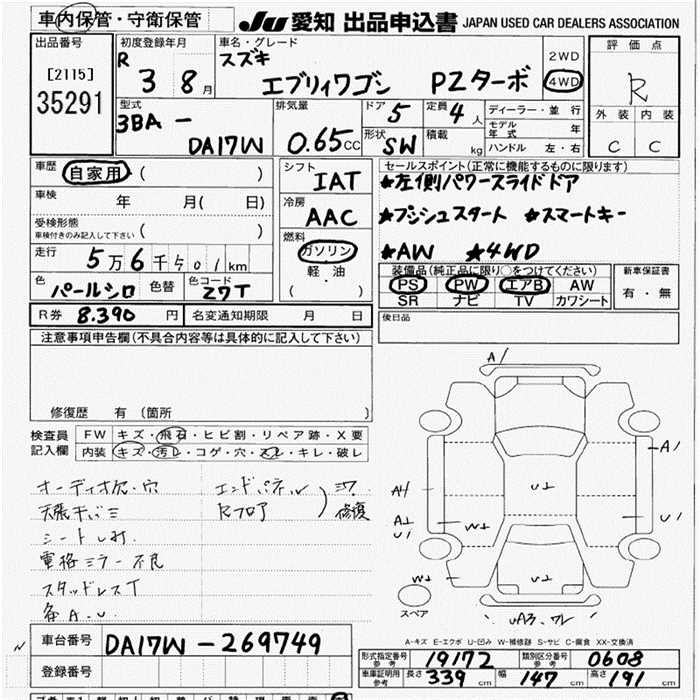 車内保管・守衛保管
JU 愛知 出品申込書 JAPAN USED CAR DEALERS ASSOCIATION
出品番号
[2115]
35291
初度登録年月
R 3 8月
車名・グレード
スズキ
エブリィワゴン PZターボ
2WD
4WD
評価点
R
外装 内装
C C
型式
3BA -
DA17W
排気量
0.65cc
ドア 5
形状 SW
定員 4人
積載 kg
ディーラー・並行
モデル年式 年
ハンドル 左・右
車歴
自家用 ( )
車検 年 月( 日)
受検形態
車検付きのみ記入して下さい ( )
走行
5万6千501km
色 パールシロ
色替
色コード Z7T
R券 8.390 円
名変通知期限 月 日
シフト
IAT
冷房
AAC
燃料
ガソリン
軽・油
( )
セールスポイント(正常に機能するものに限ります)
★左側パワースライドドア
★プッシュスタート ★スマートキー
★AW ★4WD
装備品(純正品に限り○をつけてください)
PS PW エアB AW
SR ナビ TV カワシート
新車保証書
有・無
後日品
注意事項申告欄(不具合内容等は具体的に記入して下さい)
修復歴 有(箇所 )
検査員
記入欄
FW キズ・飛石・ヒビ割・リペア跡・X要
内装 キズ・汚レ・コゲ・穴・スレ・キレ・破レ
オーディオ欠・穴
シートしみ
電格ミラー不良
スタッドレスT
各A.U.
エンドパネル
Rフロア
修復
A1
A1
U1
A4
U1
W1
スペア
A-キズ E-エクボ U-凹み W-補修跡 S-サビ C-腐食 XX-交換済
車台番号 DA17W-269749
登録番号
形式指定番号 参考 19172
類別区分番号 参考 0608
車庫証明用 参考 長さ 339cm 幅 147cm 高さ 191cm